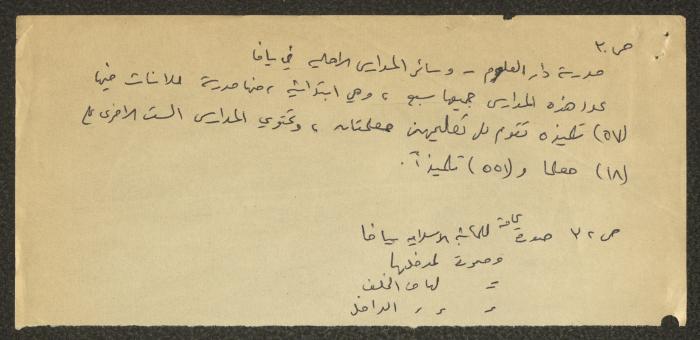 ص ٣٠
مدرسة دار العلوم - وسائر المدارس الاهلية في يافا
عدد هذه المدارس جميعها سبع ، وهي ابتدائية ، منها مدرسة للاناث فيها
(٥٧) تلميذة تقوم على تعليمهن معلمتان ، وتحتوي المدارس الست الاخرى على
(١٨) معلما و (٥٥١) تلميذاً .
ص ٣٢ صورة عامة للكلية الاسلامية بيافا
وصورة لمدخلها
" لها من الخلف
" " " الداخل